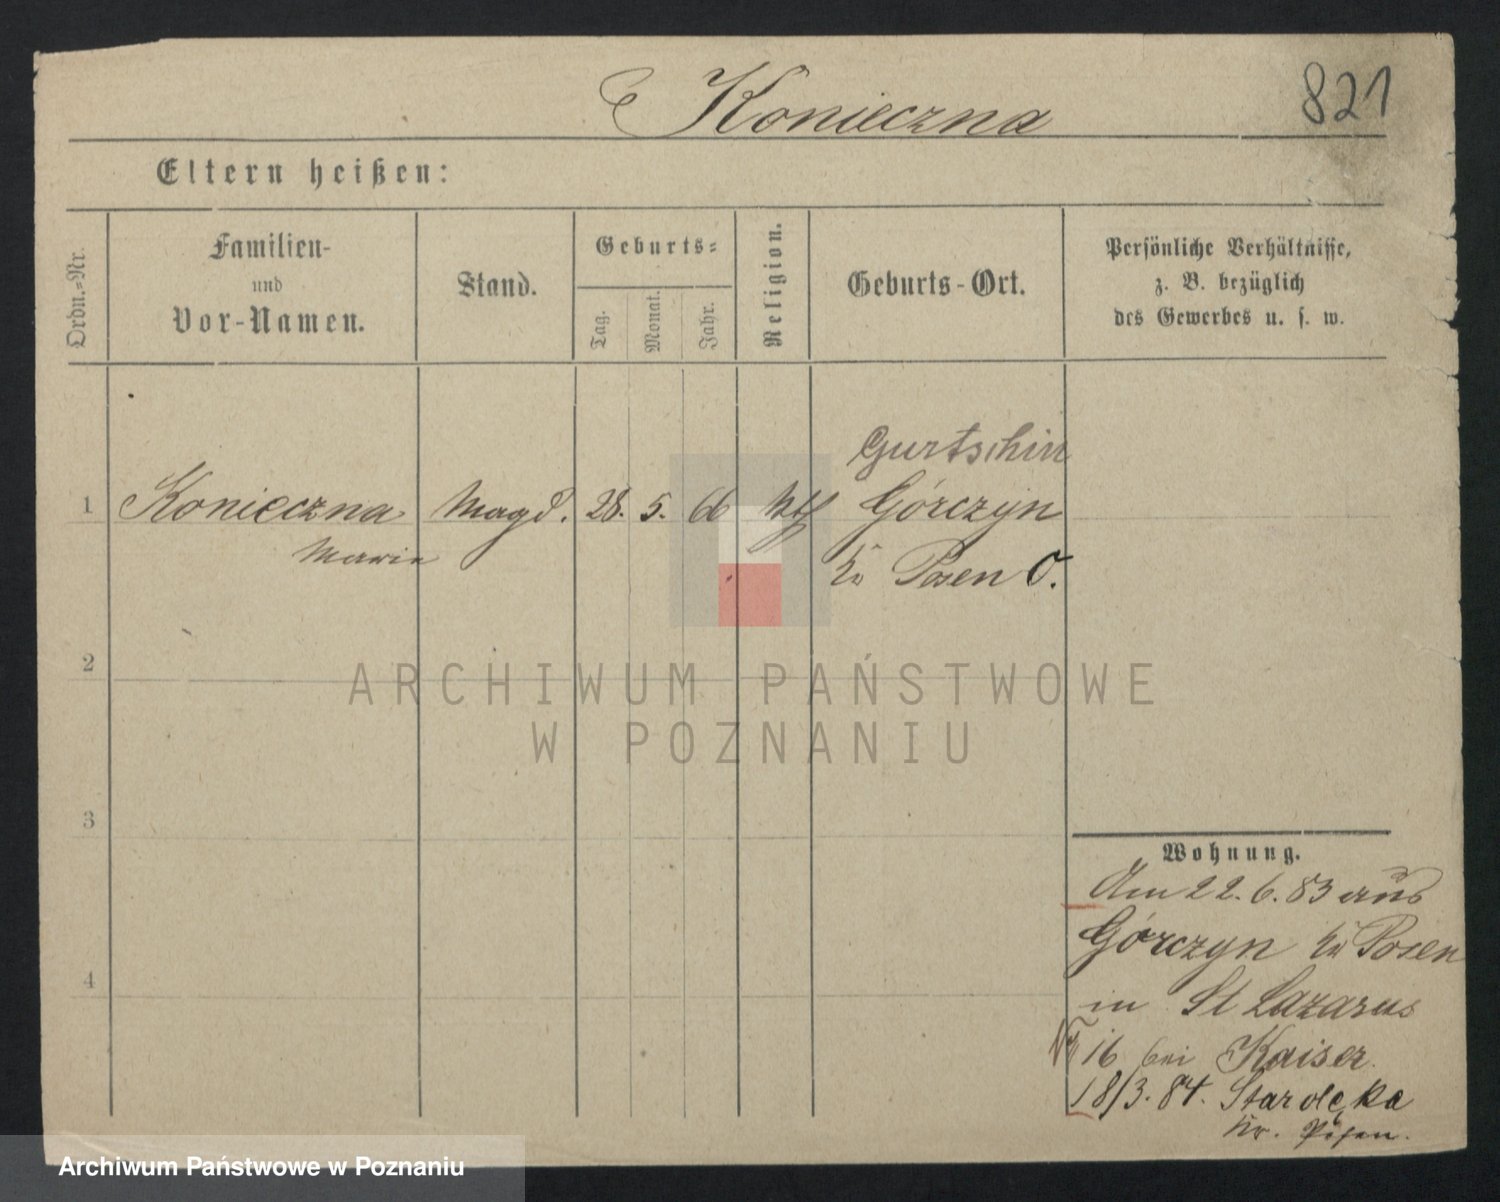 Konieczna
821
Eltern heißen:
Ordn.=Nr.
Familien-
und
Vor-Namen.
Stand.
Geburts=
Tag.
Monat.
Jahr.
Religion.
Geburts-Ort.
Persönliche Verhältnisse,
z. B. bezüglich
des Gewerbes u. s. w.
Gurtschin
1 Konieczna Magd. 28. 5. 66 Górczyn
Marie
Kr Posen O.
2
ARCHIWUM PAŃSTWOWE
W POZNANIU
3
Wohnung.
Am 22. 6. 83 aus
Górczyn Kr Posen
4
in St Lazarus
16 bei Kaiser.
18/3. 84. Starolęka
Kr. Posen.
Archiwum Państwowe w Poznaniu